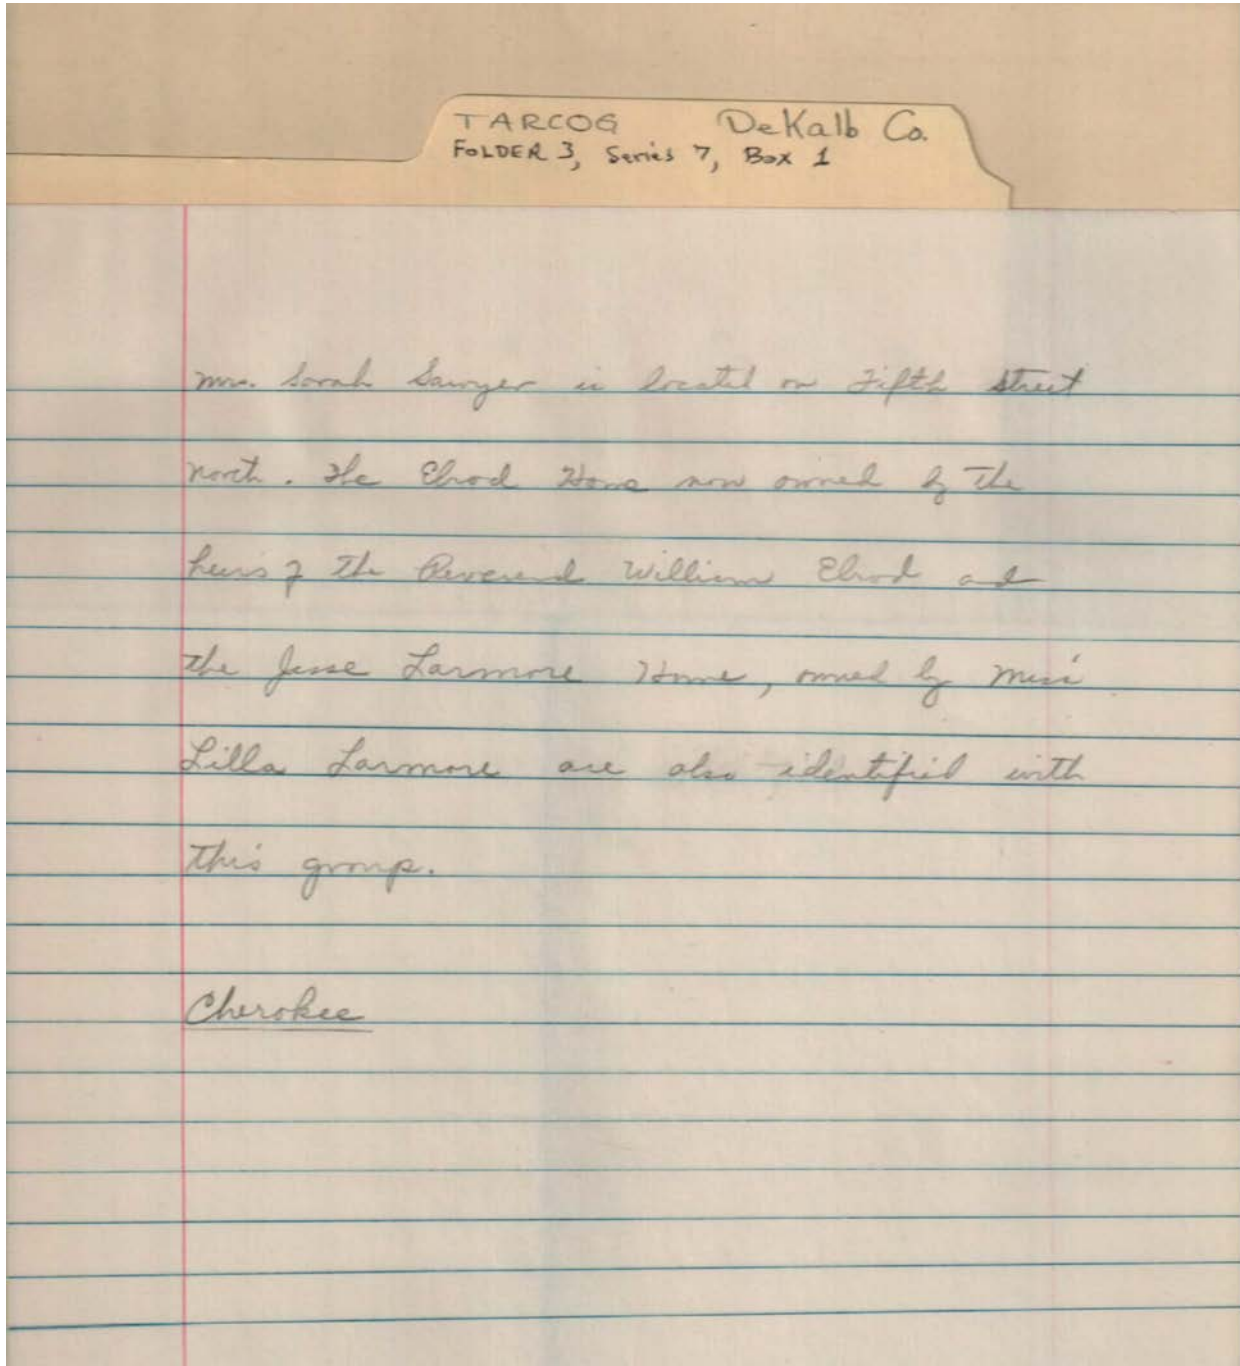 TARCOG DeKalb Co.
FOLDER 3, Series 7, Box 1
Mrs. Sarah Sawyer is located on Fifth Street
North. The Elrod Home now owned by the
heirs of the Reverend William Elrod and
the Jesse Larmore Home, owned by Miss
Lilla Larmore are also identified with
this group.
Cherokee